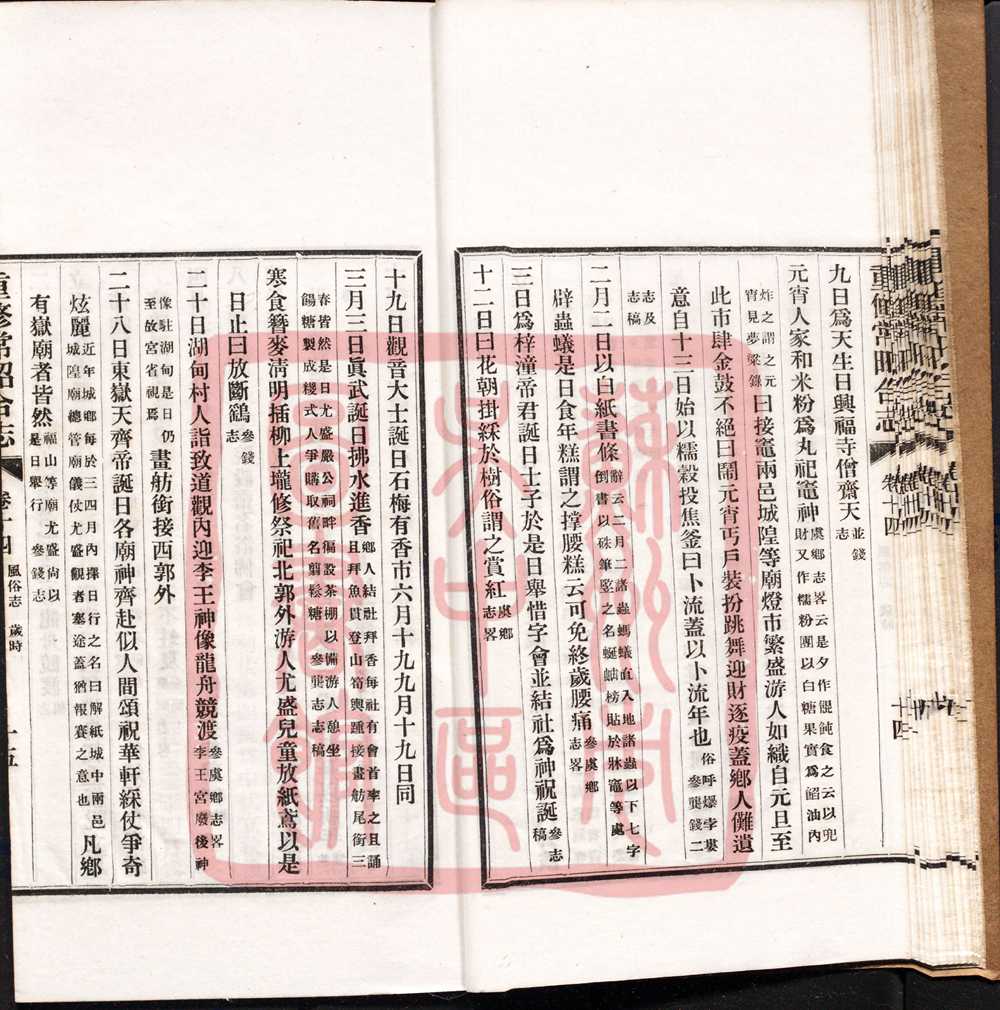 重修常昭合志
卷十四
十四
九日爲天生日興福寺僧齋天並錢志
元宵人家和米粉爲丸祀竈神虞鄉志畧云是夕作餛飩食之云以兜財又作糯粉團以白糖果實爲餡油內
炸之謂之元宵見夢粱錄曰接竈兩邑城隍等廟燈市繁盛游人如織自元旦至
此市肆金鼓不絕曰鬧元宵丐戶裝扮跳舞迎財逐疫蓋鄉人儺遺
意自十三日始以糯穀投焦釜曰卜流蓋以卜流年也俗呼爆孛婁參龔錢二
志及志稿
二月二日以白紙書條辭云二月二諸蟲螞蟻直入地諸蟲以下七字倒書以硃筆竪之名蜒蚰榜貼於牀竈等處
辟蟲蟻是日食年糕謂之撑腰糕云可免終歲腰痛參虞鄉志畧
三日爲梓潼帝君誕日士子於是日舉惜字會並結社爲神祝誕參志稿
十二日曰花朝掛綵於樹俗謂之賞紅虞鄉志畧
十九日觀音大士誕日石梅有香市六月十九九月十九日同
三月三日眞武誕日拂水進香鄉人結社拜香每社有會首率之且誦且拜魚貫登山筍輿踵接畫舫尾銜三
春皆然是日尤盛嚴公祠畔偏設茶棚以備游人憩坐餳糖製成綫式人爭購取舊名翦鬆糖參龔志志稿
寒食簪麥淸明插柳上壠修祭祀北郭外游人尤盛兒童放紙鳶以是
日止曰放斷鷂參錢志
二十日湖甸村人詣致道觀內迎李王神像龍舟競渡參虞鄉志畧李王宮廢後神
像駐湖甸是日仍至故宮省視焉畫舫銜接西郭外
二十八日東嶽天齊帝誕日各廟神齊赴似人間頌祝華軒綵仗爭奇
炫麗近年城鄉每於三四月內擇日行之名曰解紙城中兩邑城隍廟總管廟儀仗尤盛觀者塞途蓋猶報賽之意也凡鄉
有嶽廟者皆然福山等廟尤盛尙以是日舉行參錢志
重修常昭合志
卷十四
風俗志
歲時
十五